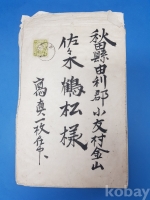 秋田縣由利郡小友村金山
佐々木鶴松様
寫真一枚在中
kobay